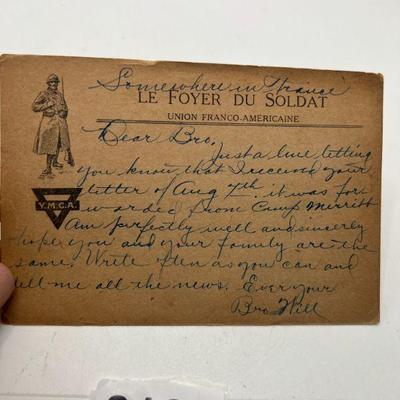 Somewhere in France
LE FOYER DU SOLDAT
UNION FRANCO-AMÉRICAINE
Dear Bro,
Just a line letting
you know that I received your
letter of Aug 7th... it was for-
warded from Camp Merritt
Am perfectly well and sincerely
hope you and your family are the
same. Write often as you can and
tell me all the news. Ever your
Bro Will
Y.M.C.A.